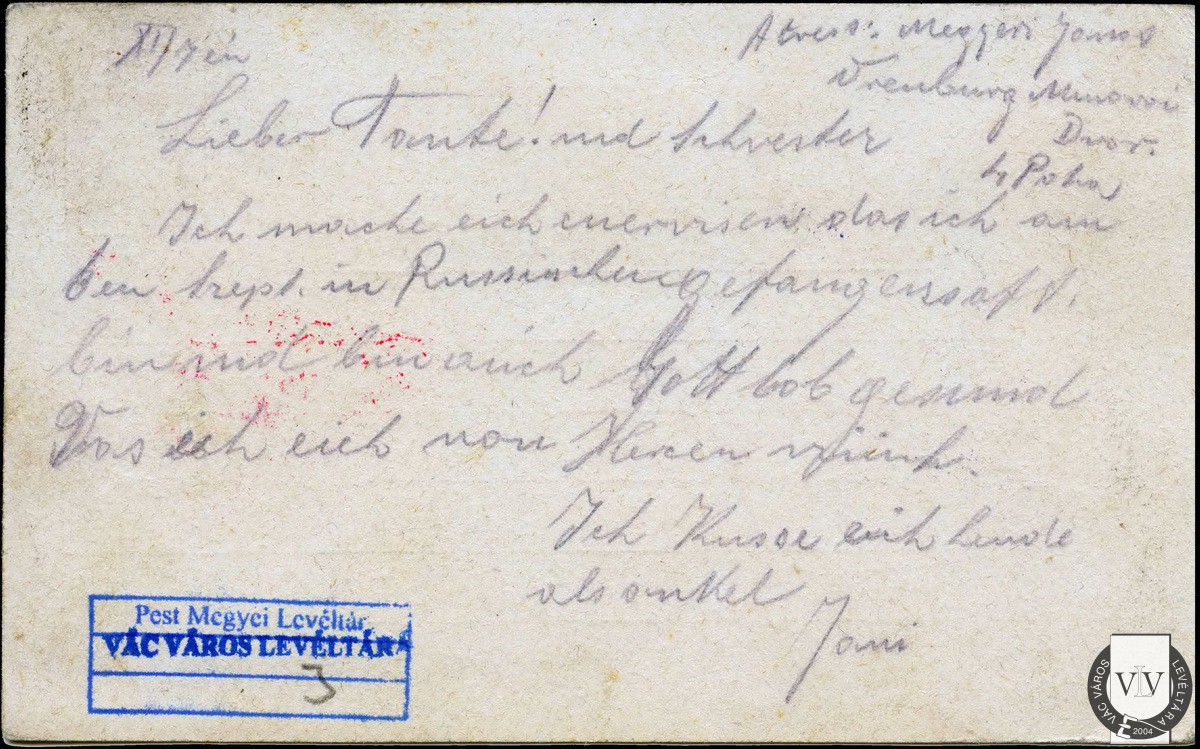 XII/7én
Atress: Meggyeri Janos
Orenburg Menovoi
Dvor.
4 Rota
Lieber Tante! und Schvester
Ich mache eich zu wisen das ich am
6en Szept. in Russischen gefangensaft.
bin und bin auich Gott lob gesund
Was ich eich von Herzen
Ich Kusse eich
als onkel
Jani
Pest Megyei Levéltár
VÁC VÁROS LEVÉLTÁRA
3
VÁC VÁROS LEVÉLTÁRA
VLV
2004